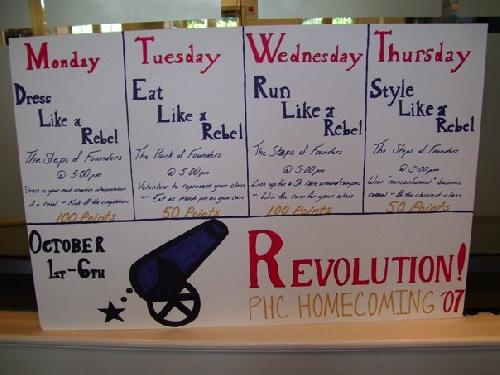 Monday
Dress
Like a
Rebel
The Steps of Founders
@ 5:00 pm
Dress in your most creative interpretation
of a rebel - the competition
100 Points
Tuesday
Eat
Like a
Rebel
The Back of Founders
@ 5:00 pm
Volunteer to represent your class
- Eat as much pie as you can
50 Points
Wednesday
Run
Like a
Rebel
The Steps of Founders
@ 5:00 pm
Line up for a 5K race around campus
- Win the race for your class
100 Points
Thursday
Style
Like a
Rebel
The Steps of Founders
@ 5:00 pm
Wear "nonconformist" business
casual - Be the classiest class
50 Points
October
1st-6th
Revolution!
PHC Homecoming '07